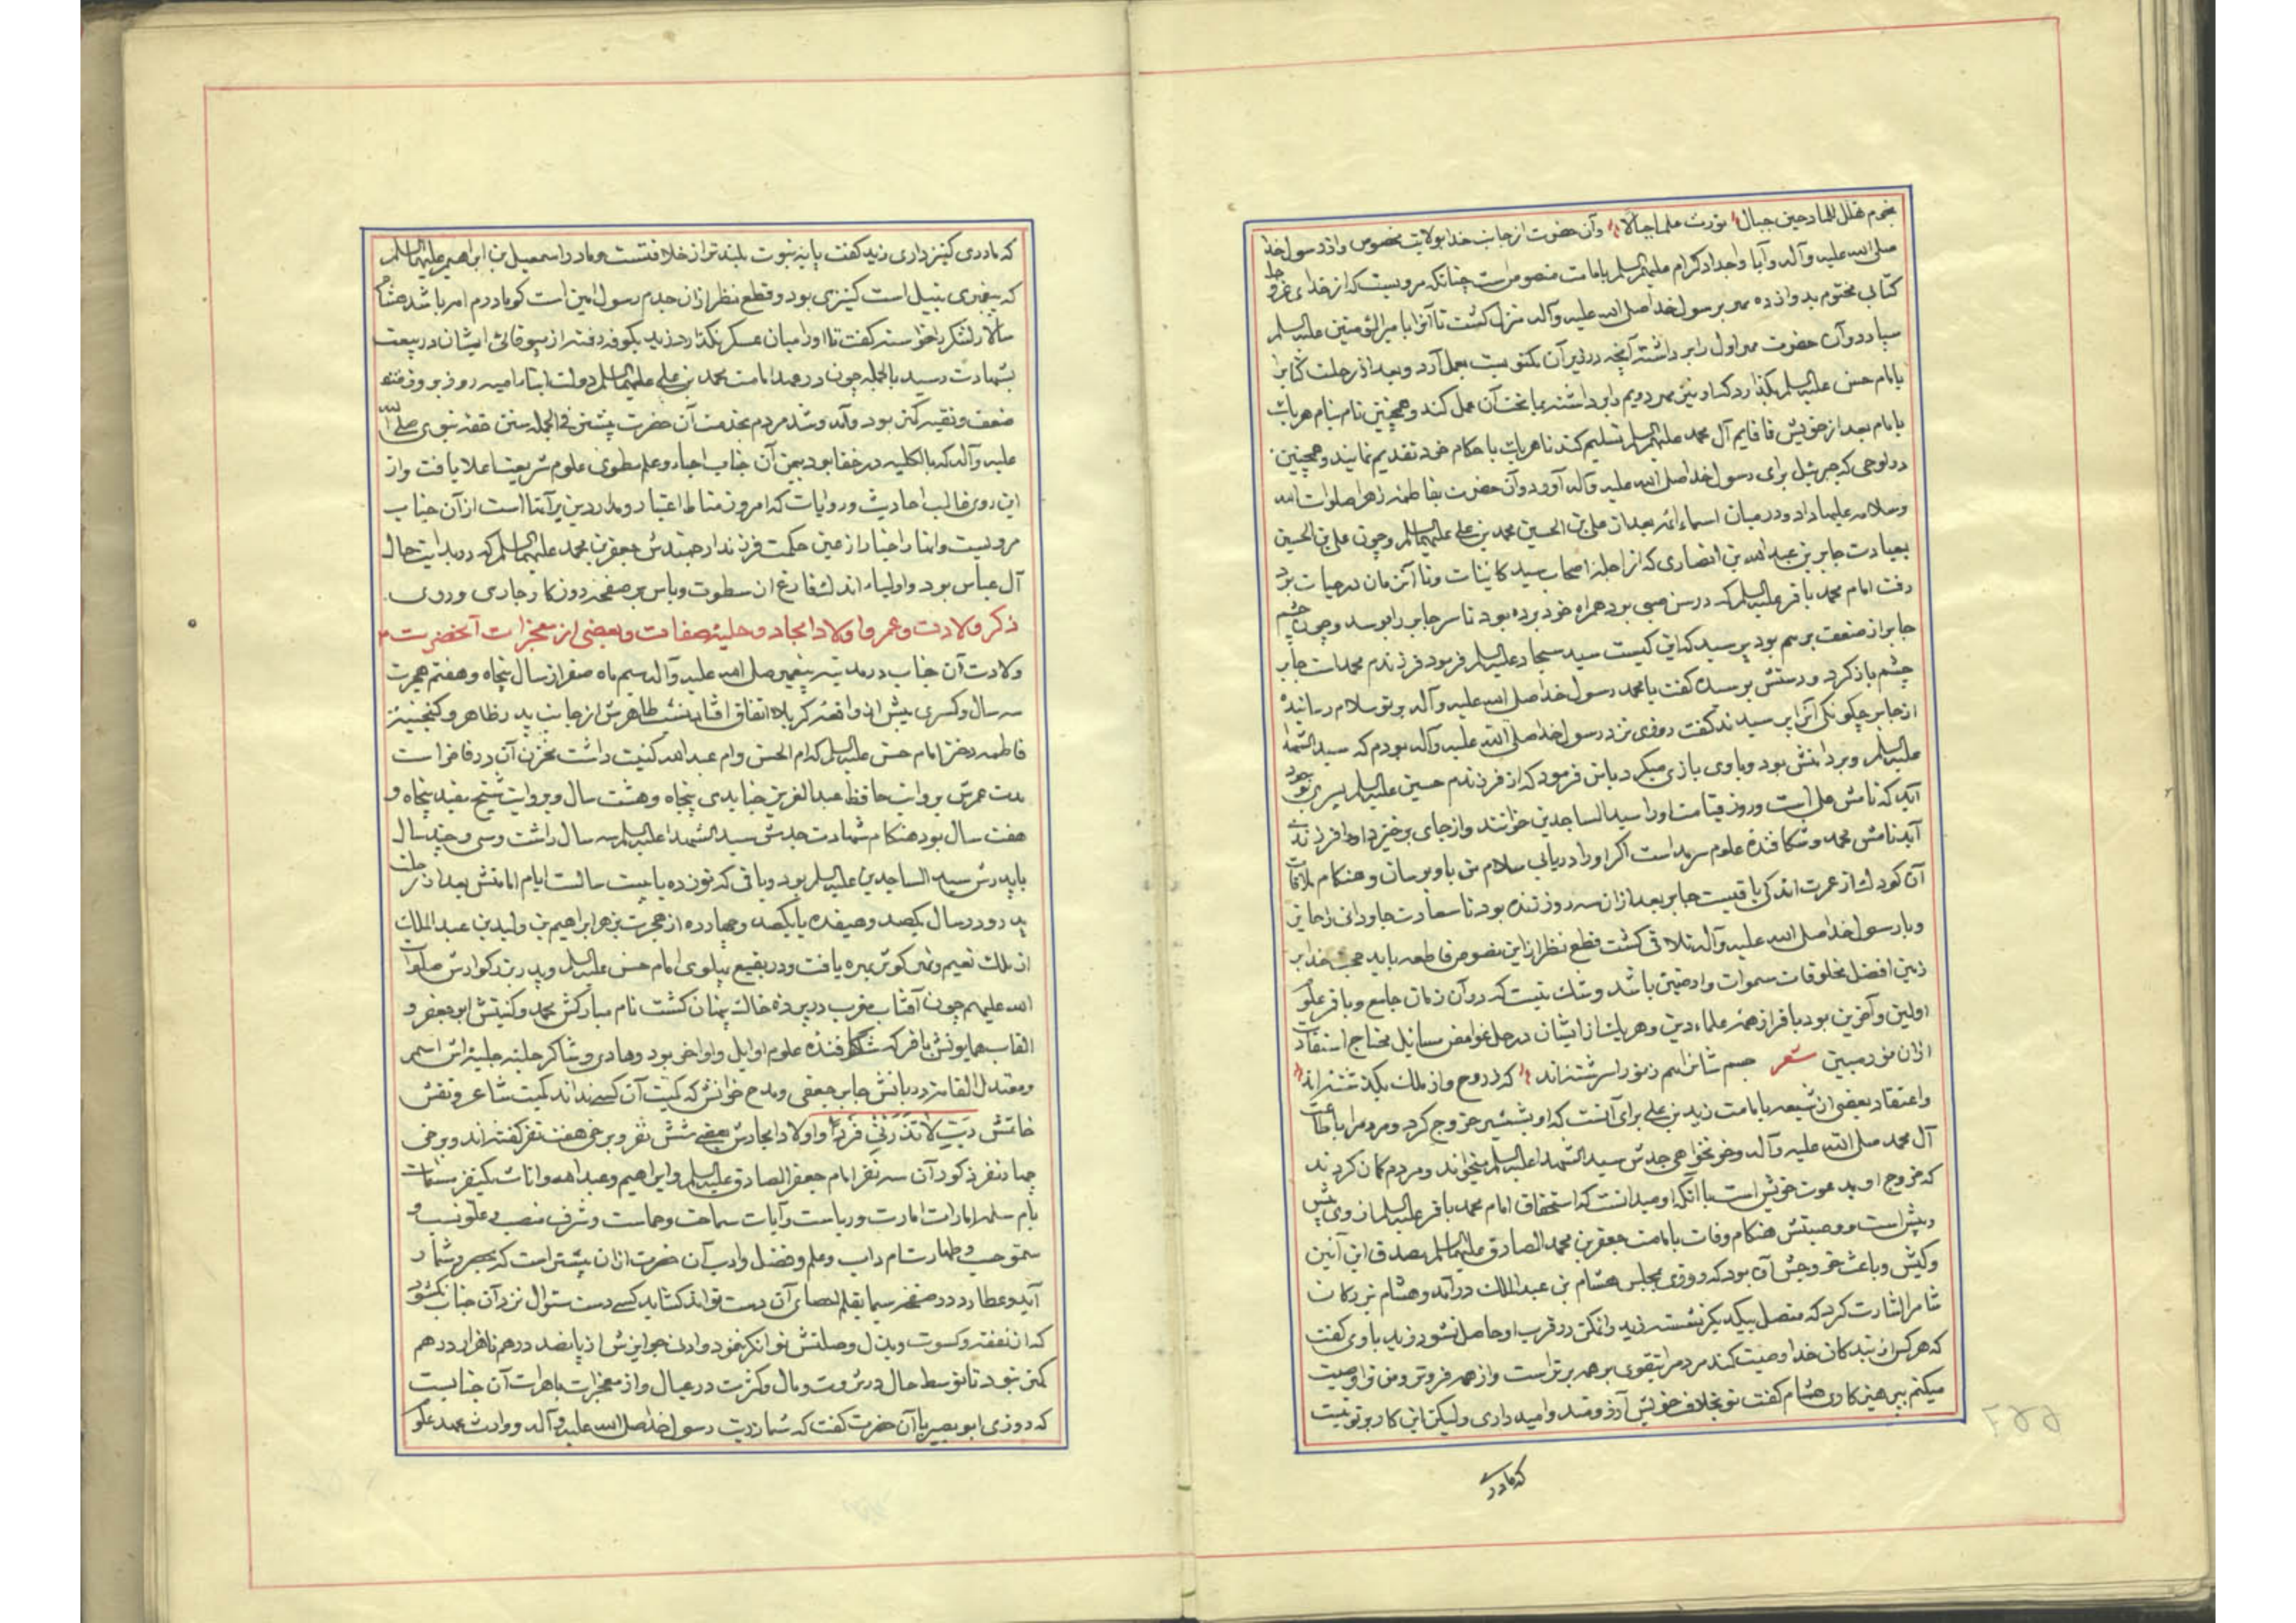 نجوم تهلل للمدلجین جبال تورث علما جبالا وآن حضرت از جانب خدا بولایت مخصوص واز رسول خدا
صلی الله علیه وآله وآبا واجداد کرام علیهم السلم بامامت منصوص است چنانکه مرویست که از خدای عز و جل
کتابی مختوم بدوازده مهر برسول خدا صلی الله علیه وآله منزل کشت تا آنرا بامیرالمؤمنین علیه السلم
سپارد وآن حضرت مهر اول را برداشته آنچه در زیر آن مکتوبست بعمل آرد وبعد از رحلت کتابرا
بامام حسن علیه السلم بکذارد که او نیز مهر دویم را برداشته بما تحت آن عمل کند وهمچنین نام بنام هر یک
بامام بعد از خویش تا قایم آل محمد علیهم السلم تسلیم کند تا هر یک باحکام خود تقدیم نمایند وهمچنین
در لوحی که جبرئیل برای رسول خدا صلی الله علیه وآله آورد وآن حضرت بفاطمه زهرا صلوات الله
وسلامه علیها داد ودر میان اسماء ائمه بعد از علی بن الحسین محمد بن علی علیهما السلم وچون علی بن الحسین
بعیادت جابر بن عبد الله بن انصاری که از اجله اصحاب سید کاینات وتا آنزمان در حیات بود
رفت امام محمد باقر علیه السلم که در سن صبی بود همراه خود برده بود تا سر جابر را بوسد وچون چشم
جابر از ضعف برهم بود پرسید که این کیست سید سجاد علیه السلم فرمود فرزندم محمد است جابر
چشم باز کرد ودستش بوسیده کفت یا محمد رسول خدا صلی الله علیه وآله بر تو سلام رسانیده
از جابر چکونکی آنرا پرسیدند کفت روزی نزد رسول خدا صلی الله علیه وآله بودم که سید الشهدا
علیه السلم وبر دامنش بود وباوی بازی میکرد بمن فرمود که از فرزندم حسین علیه السلم پسری بوجود
آید که نامش علی است وروز قیامت اورا سید الساجدین خوانند واز جای برخیزد اورا فرزندی
آید نامش محمد وشکافنده علوم سرمد است اکر اورا دریابی سلام من باو برسان وهنکام ملاقات
آن کودک از عمرت اندکی باقیست جابر بعد از آن سه روز زنده بود تا سعادت جاودانی را حایز
وبا رسول خدا صلی الله علیه وآله تلاقی کشت قطع نظر از این نصوص قاطعه باید حجت خدا بر
زمین افضل مخلوقات سموات وارضین باشد وشک نیست که در آن زمان جامع وباقر علوم
اولین وآخرین بود باقر از همه علماء دین وهر یک از ایشان در حل غوامض مسایل محتاج استفادت
از آن نور مبین شعر جسم شان هم ز نور اسرشته اند که ز روح واز ملک بکذشته اند
واعتقاد بعضی از شیعه بامامت زید بن علی برای آنست که او بشمشیر خروج کرد ومردم را باطاعت
آل محمد صلی الله علیه وآله وخونخواهی جدش سید الشهدا علیه السلم میخواند ومردم کمان کردند
که خروج او بدعوت خویش است با آنکه او میدانست که استحقاق امام محمد باقر علیه السلم از وی پیش
وبیش است ووصیتش هنکام وفات بامامت جعفر بن محمد الصادق علیهما السلم مصدق این آئین
وکیش وباعث خروجش آن بود که روزی بمجلس هشام بن عبد الملک درآمد وهشام بزرکان
شامرا اشارت کرد که متصل بیکدیکر نشستند زید را تمکن در قرب او حاصل نشود زید باوی کفت
که هرکس از بندکان خدا وصیت کند مردم را بتقوی بر همه برتر است واز همه فروتر ومن ترا وصیت
میکنم بپرهیز کاری هشام کفت تو بخلاف خویش آرزومند وامید داری ولیکن این کار بر تو نیست
که مادرت
که مادری کنیز داری زید کفت پایه نبوت بلند تر از خلافتست ومادر اسمعیل بن ابراهیم علیهما السلم
که پیغمبری نبیل است کنیزی بود وقطع نظر از آن جدم رسول امین است کو مادرم امه باشد هشام
سالار لشکر را خواسته کفت تا اورا میان عسکر نکذارد زید بکوفه رفته از بیوفائی ایشان در بیعت
بشهادت رسید بالجمله چون در عهد امامت محمد بن علی علیهما السلم دولت ابناء امیه روز بروز قرین
ضعف وتقیه کمتر بود وآمد وشد مردم بخدمت آن حضرت بیشتر فی الجمله سنن حقه نبوی صلی الله
علیه وآله که بالکلیه در خفا بود بیمن آن جناب احیاء وعلم مطوی علوم شریعت اعلا یافت واز
این روی غالب احادیث وروایات که امروز مناط اعتبار ومدار دین برآنها است از آن جناب
مرویست وانها را خیار از عین حکمت فرزند ارجمندش جعفر بن محمد علیهما السلم که در بدایت حال
آل عباس بود واولیاء اندک فارغ از سطوت وباس بر صفحه روزکار جاری وروی
ذکر ولادت وعمر واولاد امجاد وحلیه صفات وبعضی از معجزات آنحضرت
ولادت آن جناب در مدینه پیغمبر صلی الله علیه وآله سیم ماه صفر از سال پنجاه وهفتم هجرت
سه سال وکسری پیش از واقعه کربلا اتفاق افتاد نسب طاهرش از جانب پدر ظاهر وکنجینه
فاطمه دختر امام حسن علیه السلم که ام الحسن وام عبد الله کنیت داشت مخزن آن در فاخر است
مدت عمرش بروایت حافظ عبد العزیز جنابدی پنجاه وهشت سال وبروایت شیخ مفید پنجاه و
هفت سال بود هنکام شهادت جدش سید الشهدا علیه السلم سه سال داشت وسی وچند سال
با پدرش سید الساجدین علیه السلم بود وباقی که نوزده یا بیست سالست ایام امامتش بعد از رحلت
پدر ودر سال یکصد وهیفده یا یکصد وچهارده از هجرت بزهر ابراهیم بن ولید بن عبد الملک
از ملک نعیم ونهر کوثر بهره یافت ودر بقیع پهلوی امام حسن علیه السلم وپدر بزرکوارش صلوات
الله علیهم چون آفتاب مغرب در پرده خاک پنهان کشت نام مبارکش محمد وکنیتش ابو جعفر و
القاب همایونش باقر که شکافنده علوم اوایل واواخر بود وهادی وشاکر حلیه جلیه اش اسمر
ومعتدل القامه ودربانش جابر جعفی ومدح خوانش که کمیت آن کسی نداند کمیت شاعر ونقش
خاتمش رَبِّ لا تَذَرْنی فَرداً واولاد امجادش بعضی شش نفر وبرخی هفت نفر کفته اند وبرخی
چهار نفر ذکور آن سه نفر امام جعفر الصادق علیه السلم وابراهیم وعبد الله واناث یکنفر مسمات
بام سلمه امارات امارت وریاست وآیات سماحت وحماست وشرف منصب وعلو نسب و
سمو حسب وطهارت شام داب وعلم وفضل وادب آن حضرت از آن بیشتر است که بحصر وشمار
آید وعطارد در صفحه سیما بقلم احصای آن دست تواند کشاید کسی دست سئوال نزد آن جناب نکشود
که از نفقه وکسوت وبذل وصلتش توانکر نمود وادنی جوایزش از پانصد درهم تا هزار درهم
کمتر نبود تا بتوسط حال در ثروت ومال وکثرت در عیال واز معجزات باهرات آن جنابست
که روزی ابو بصیر باآن حضرت کفت که شما ذریت رسول خدا صلی الله علیه وآله ووارث محمد علوم